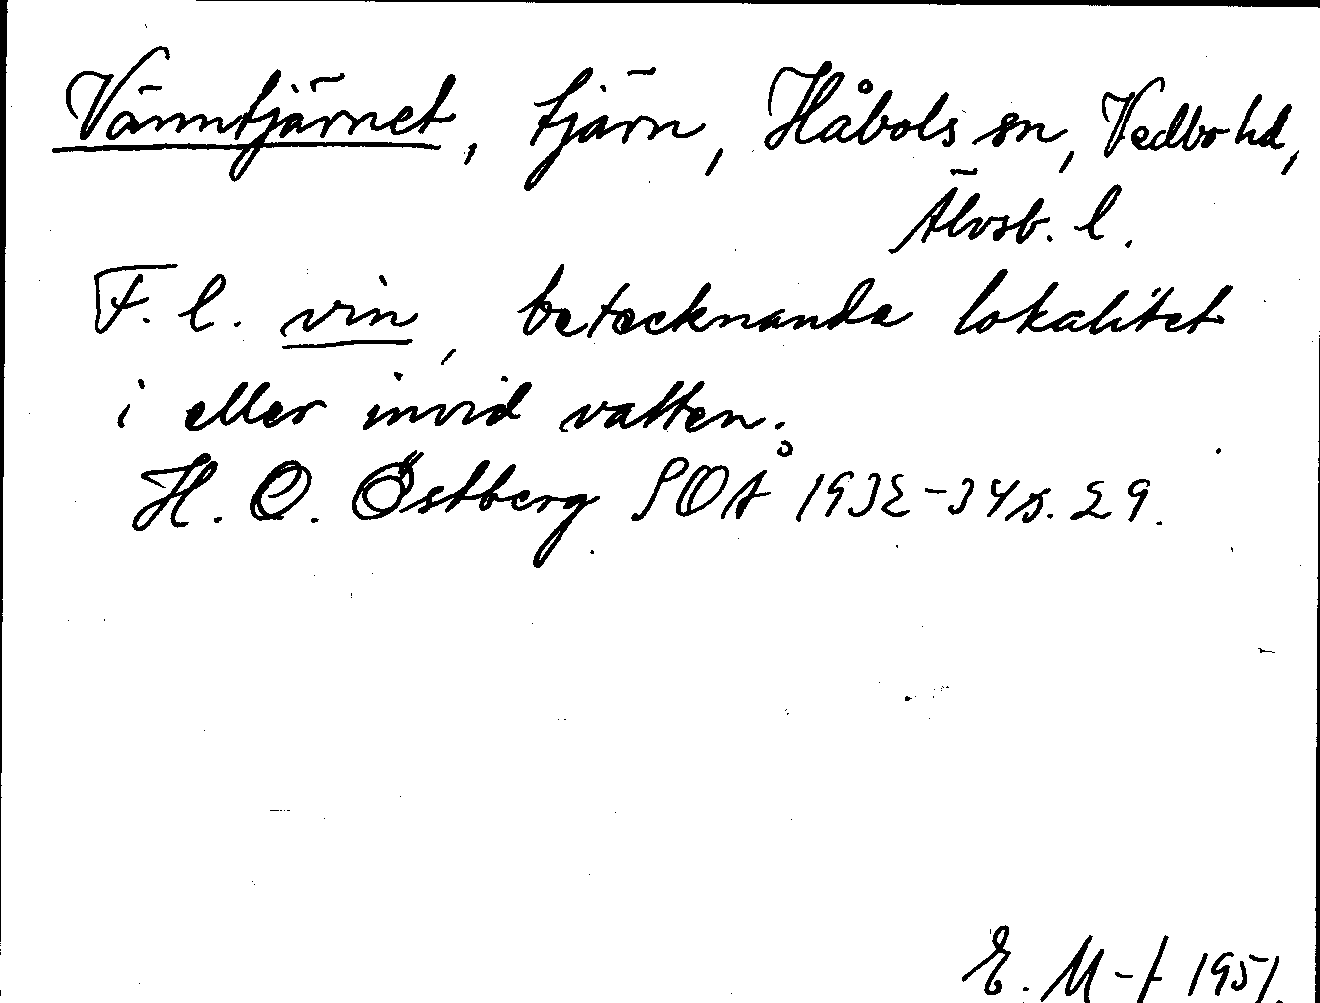 Vänntjärnet, tjärn, Håbols sn, Vedbo hd,
Älvsb. l.
F. l. vin, betecknande lokalitet
i eller invid vatten.
H. O. Östberg SOÅ 1932-34 s. 29.
E. M-t 1951.